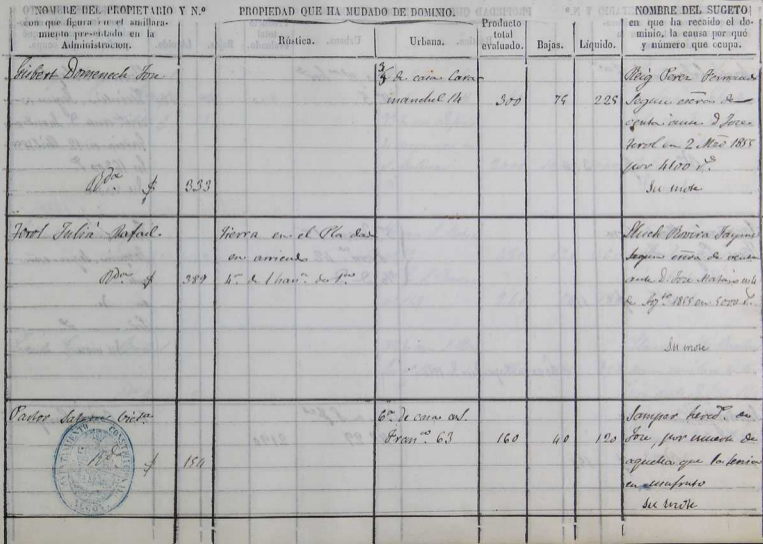 NOMBRE DEL PROPIETARIO Y N.º
con que figura en el amillara-
miento presentado en la
Administracion.
PROPIEDAD QUE HA MUDADO DE DOMINIO.
Rústica.
Urbana.
Producto
total
evaluado.
Bajas.
Líquido.
NOMBRE DEL SUGETO
en que ha recaido el do-
minio, la causa por qué
y número que ocupa.
Gisbert Domenech Jose
333
de casa Cara-
manchel 14
300
75
225
Reig Perez Fernando
segun escra de
venta ante D. Jose
Torol en 2 Mzo 1855
por 4100
Su mote
Torol Juliá Rafael.
389
tierra en el Pla
en arriendo
4ª de 1 han.
Rovira Jayme
segun escra de venta
ante D. Jose en 4
de Agto 1855 en 5000
Su mote
Pastor
154
AYUNTAMIENTO CONSTITUCIONAL
6ª de casa en S.
Franco 63
160
40
120
Sampar hered. en
Jose, por muerte de
aquella que la tenia
en usufruto
Su mote